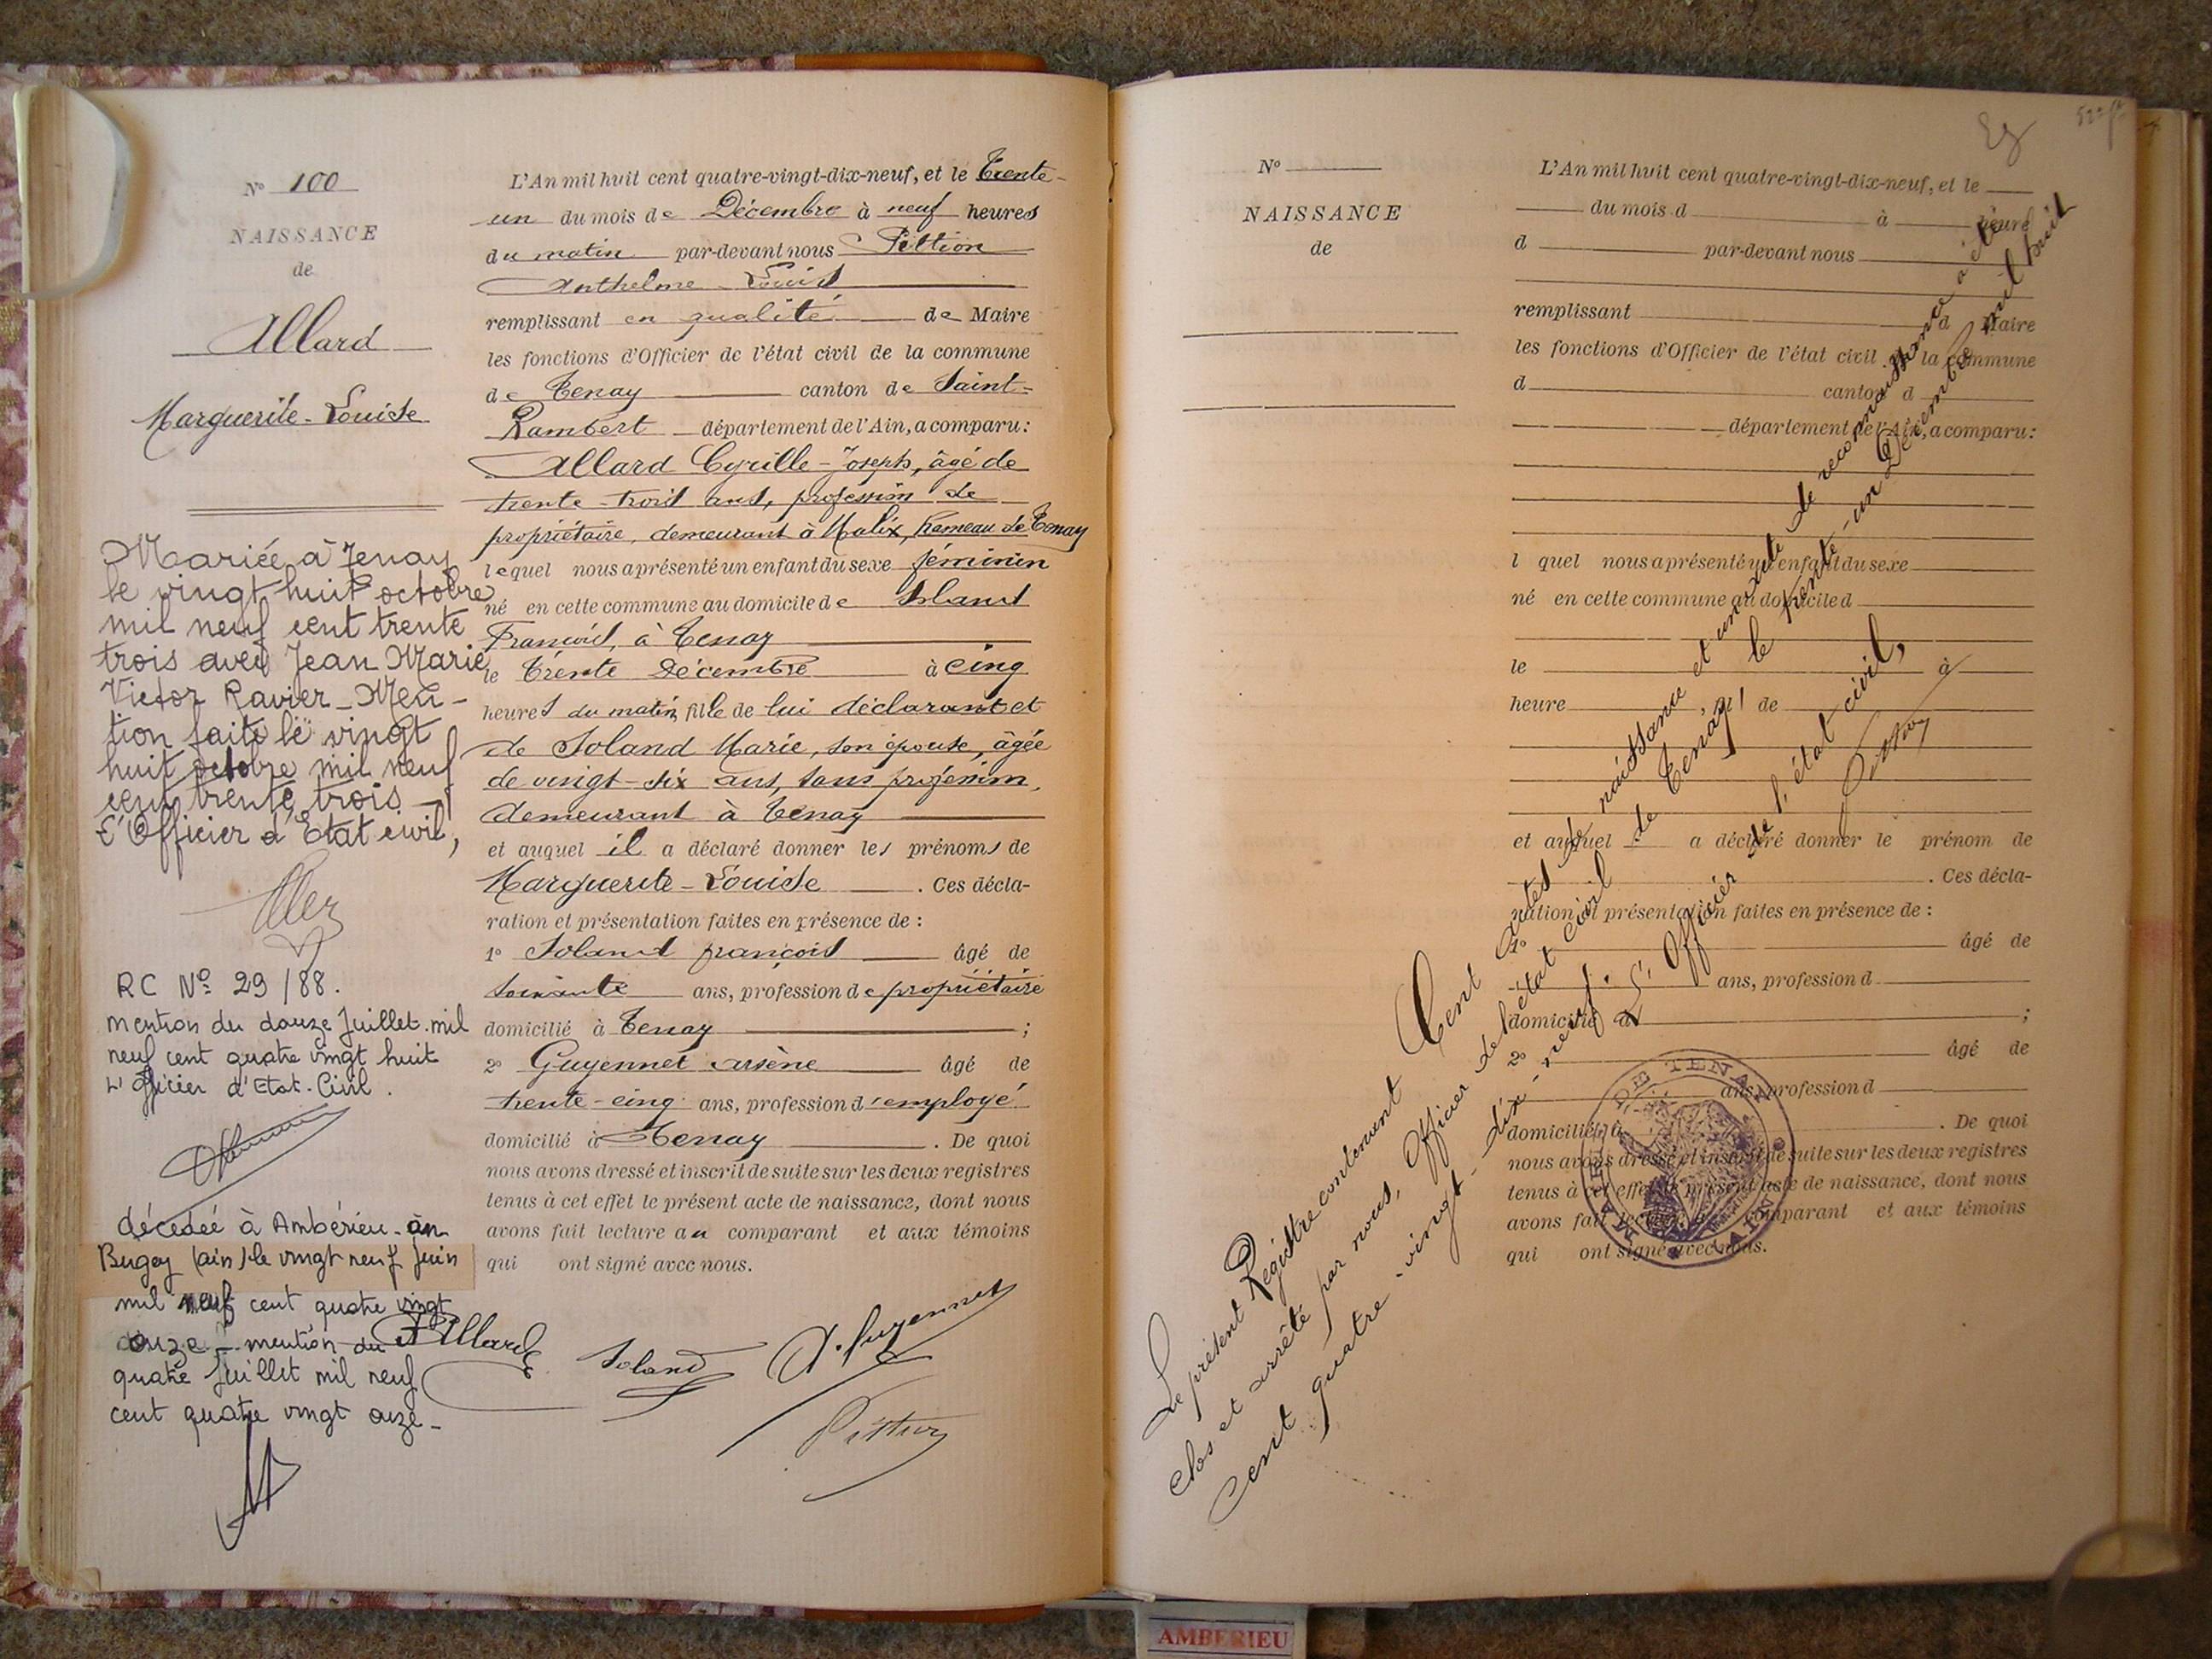 N° 100
NAISSANCE
de
Allard
Marguerite-Louise
Mariée à Tenay
le vingt huit octobre
mil neuf cent trente
trois avec Jean Marie
Victor Ravier_Men-
tion faite le vingt
huit octobre mil neuf
cent trente trois_
L'Officier d'Etat civil,
RC N° 29/88.
mention du douze Juillet mil
neuf cent quatre vingt huit
L'Officier d'Etat-Civil.
décédée à Ambérieu-en
Bugey (ain) le vingt neuf juin
mil neuf cent quatre vingt
onze_mention du
quatre Juillet mil neuf
cent quatre vingt onze_
L'An mil huit cent quatre-vingt-dix-neuf, et le Trente-
un du mois de Décembre à neuf heures
du matin par-devant nous Pittion
Anthelme-Louis
remplissant en qualité de Maire
les fonctions d'Officier de l'état civil de la commune
de Tenay canton de Saint-
Rambert département de l'Ain, a comparu:
Allard Cyrille-Joseph, âgé de
trente-trois ans, profession de
propriétaire, demeurant à Malix, hameau de Tenay
lequel nous a présenté un enfant du sexe féminin
né en cette commune au domicile de Soland
François, à Tenay
le Trente Décembre à cinq
heures du matin, fille de lui déclarant et
de Soland Marie, son épouse, âgée
de vingt-six ans, sans profession,
demeurant à Tenay
et auquel il a déclaré donner les prénoms de
Marguerite-Louise. Ces décla-
ration et présentation faites en présence de :
1° Soland françois âgé de
soixante ans, profession de propriétaire
domicilié à Tenay ;
2° Guyennet arsène âgé de
trente-cinq ans, profession d'employé
domicilié à Tenay. De quoi
nous avons dressé et inscrit de suite sur les deux registres
tenus à cet effet le présent acte de naissance, dont nous
avons fait lecture au comparant et aux témoins
qui ont signé avec nous.
Allard Soland A. Guyennet
Pittion
N°
NAISSANCE
de
L'An mil huit cent quatre-vingt-dix-neuf, et le
du mois d à heure
d par-devant nous
remplissant d Maire
les fonctions d'Officier de l'état civil de la commune
d canton d
département de l'Ain, a comparu:
l quel nous a présenté un enfant du sexe
né en cette commune au domicile d
le à
heure , fil de
et auquel a déclaré donner le prénom de
. Ces décla-
ration et présentation faites en présence de :
1° âgé de
ans, profession d
domicilié à ;
2° âgé de
ans, profession d
domicilié à . De quoi
nous avons dressé et inscrit de suite sur les deux registres
tenus à cet effet le présent acte de naissance, dont nous
avons fait lecture au comparant et aux témoins
qui ont signé avec nous.
Le présent Registre contenant Cent actes de naissance et un acte de reconnaissance a été
clos et arrêté par nous, Officier de l'état civil de Tenay, le trente-un Décembre mil huit
cent quatre-vingt-dix-neuf. L'Officier de l'état civil,
Pittion
MAIRIE DE TENAY AIN
AMBERIEU